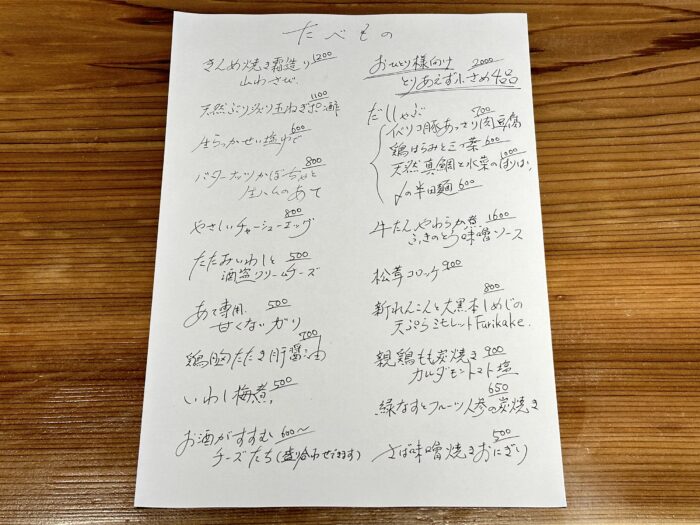 たべもの
きんめ焼き霜造り 1200
山わさび
天然ぶり炙り玉ねぎポン酢 1100
生らっかせい塩ゆで 600
バターナッツかぼちゃと 800
生ハムのあて
やさしいチャーシューエッグ 800
たたみいわしと 500
酒盗クリームチーズ
あて専用 500
甘くないガリ
鶏胸たたき肝醤油 700
いわし梅煮 500
お酒がすすむ 600〜
チーズたち(盛り合わせできます)
おひとり様向け 2000
とりあえず小さめ4品
だししゃぶ
イベリコ豚あっさり肉豆腐 700
鶏はらみと三つ葉 600
天然真鯛と水菜のはりはり 1000
〆の半田麺 600
牛たんやわらか煮 1600
ふきのとう味噌ソース
松茸コロッケ 900
新れんこんと大黒本しめじの 800
天ぷらミモレットFurikake.
親鶏もも炭焼き 900
カルダモントマト塩
緑なすとフルーツ人参の炭焼き 650
さば味噌焼きおにぎり 500